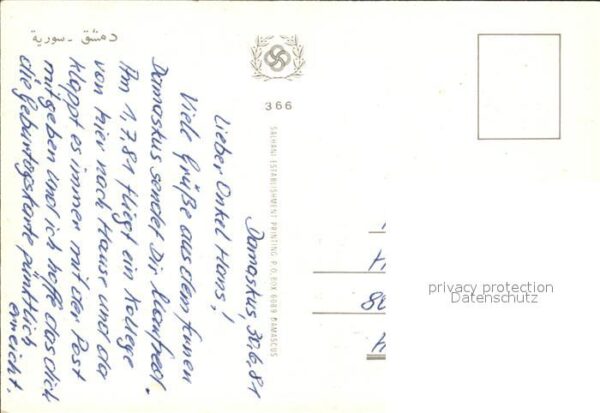 دمشق - سورية
366
SALHANI ESTABLISHMENT PRINTING P.O.BOX 6089 DAMASCUS
Damaskus, 30.6.81
Lieber Onkel Hans!
Viele Grüße aus dem fernen
Damaskus sendet Dir Manfred.
Am 1.7.81 fliegt ein Kollege
von hier nach Hause und da
klappt es immer mit der Post
mitgeben und ich hoffe das dich
die Geburtstagskarte pünktlich
erreicht.
privacy protection
Datenschutz